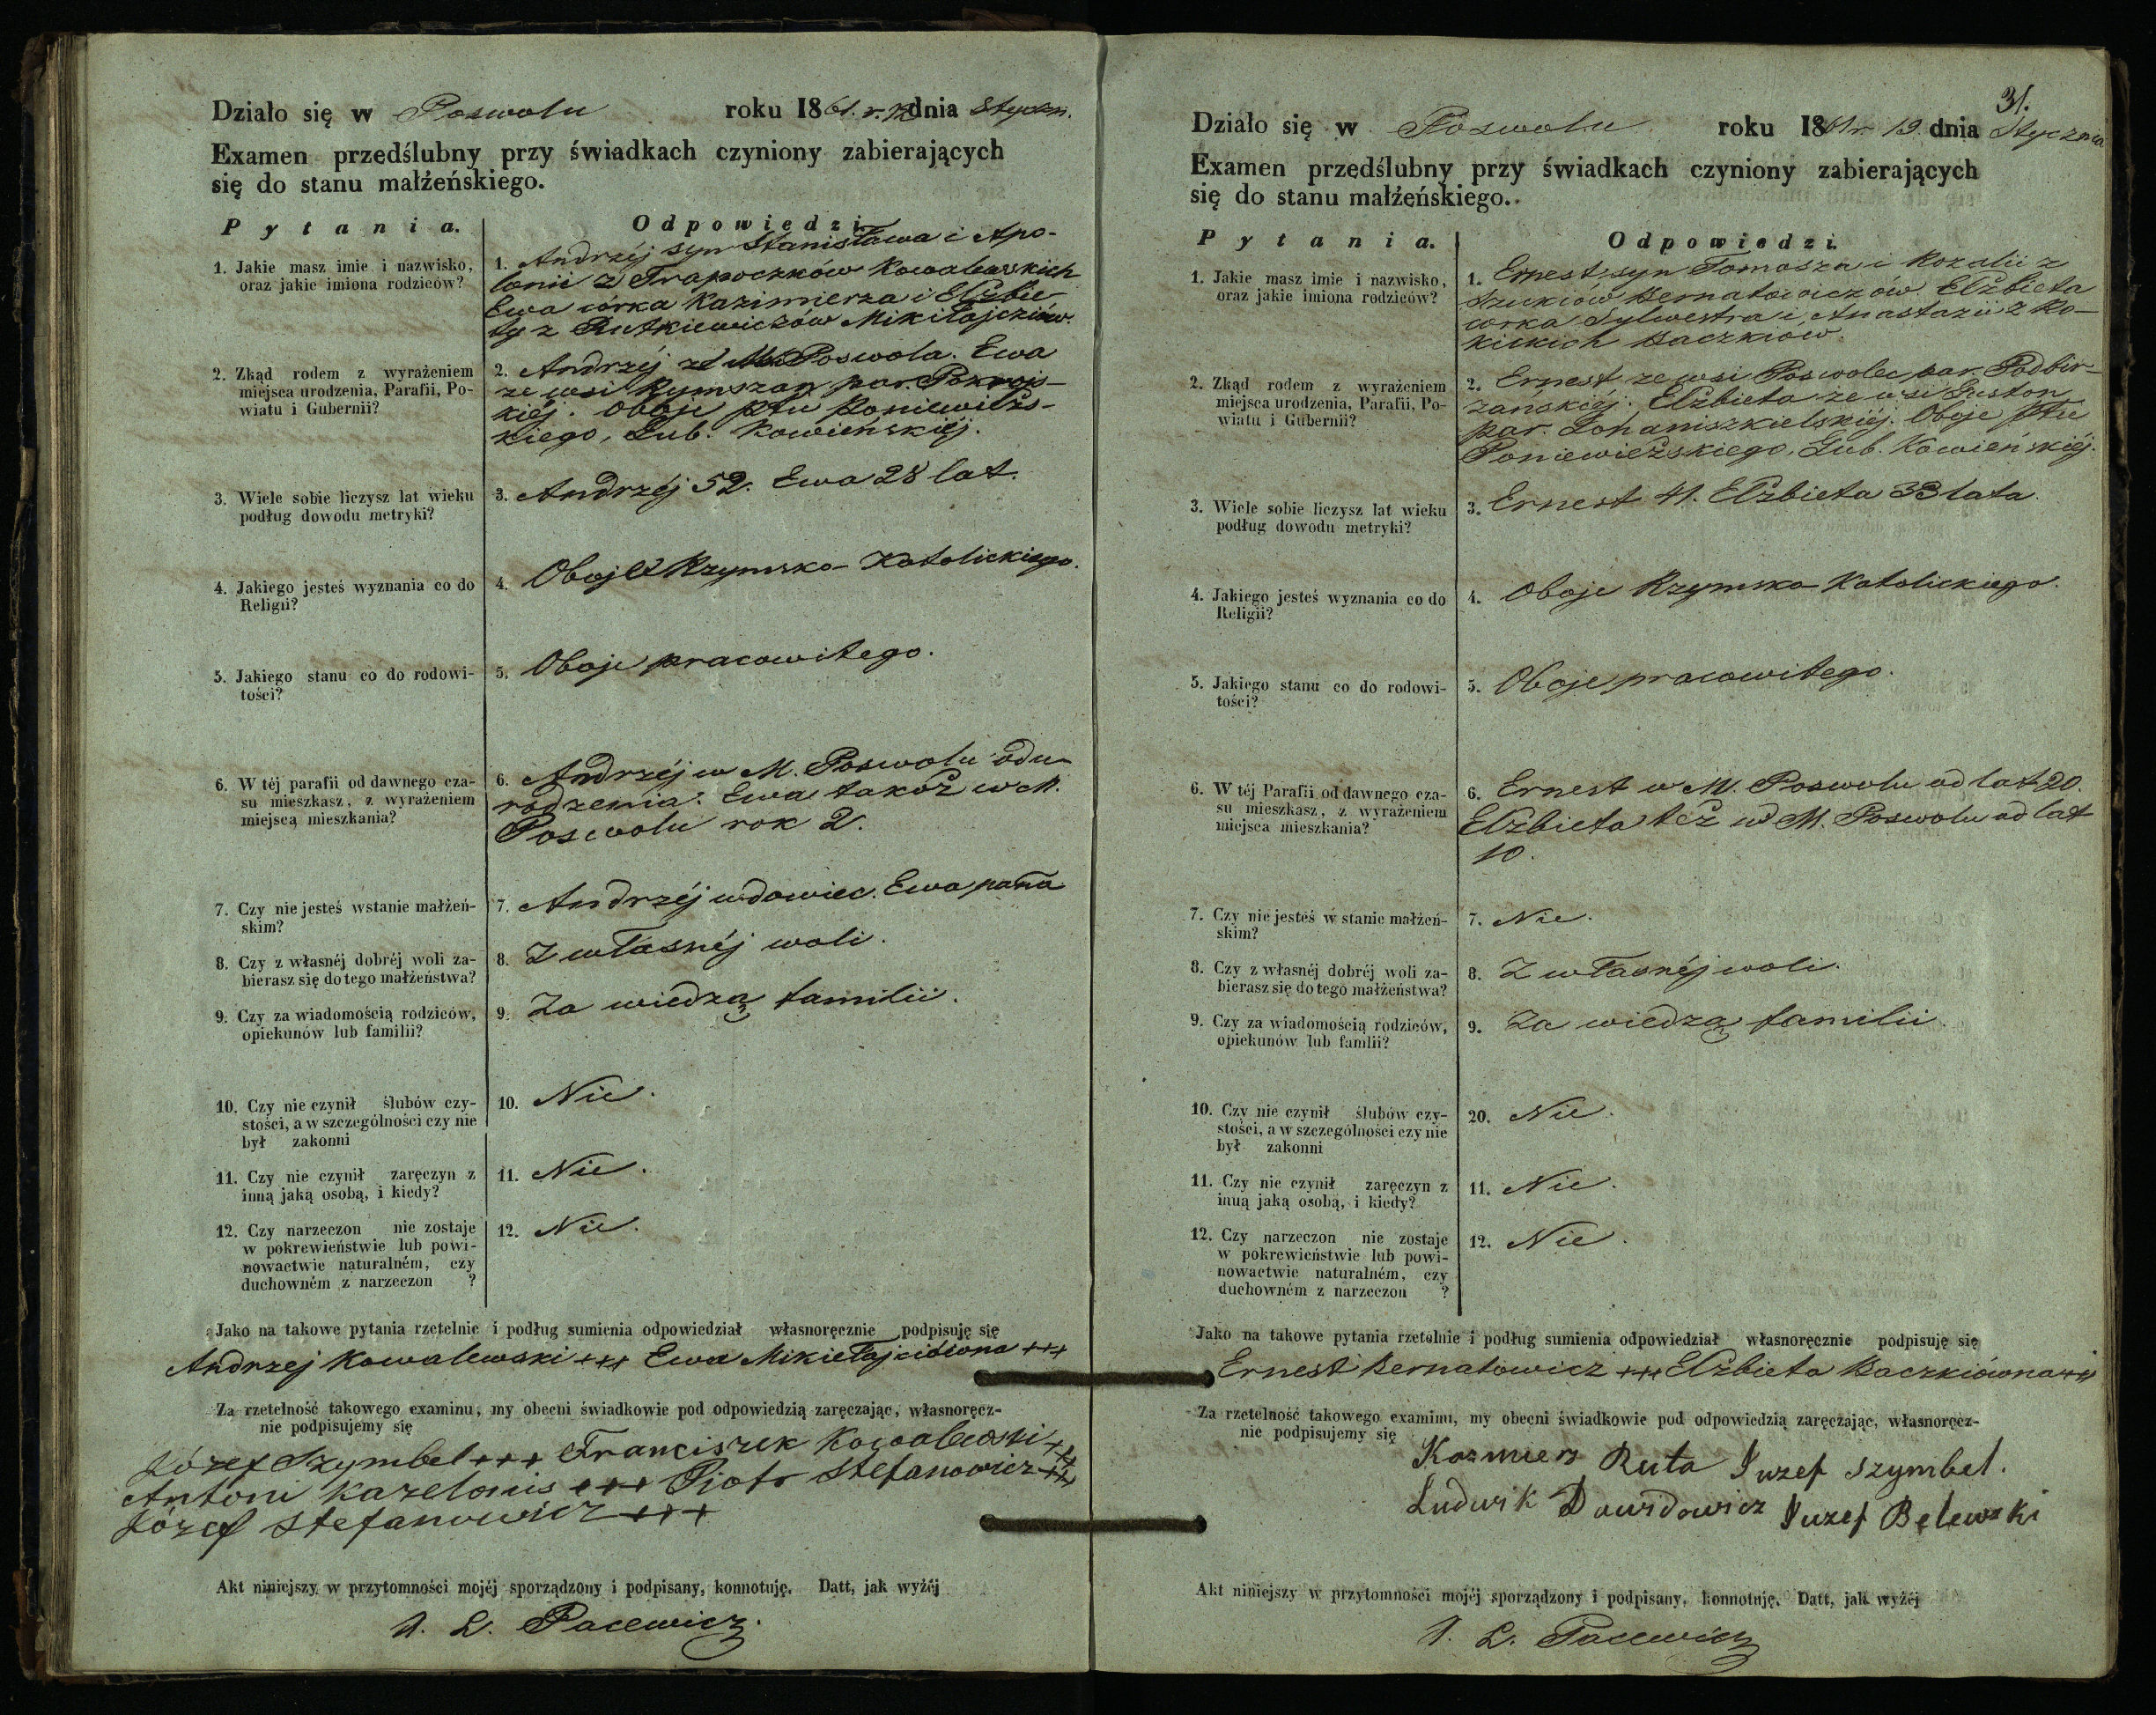 Działo się w Poswolu roku 1861. r. 18 dnia Styczn.
Examen przedślubny przy świadkach czyniony zabierających
się do stanu małżeńskiego.
Pytania. Odpowiedzi.
1. Jakie masz imie i nazwisko,
oraz jakie imiona rodziców?
1. Andrzéj syn Stanisława i Apo-
lonii z Trapoczków Kowalewskich
Ewa córka Kazimierza i Elżbie-
ty z Rutkiewiczów Mikitajciów.
2. Zkąd rodem z wyrażeniem
miejsca urodzenia, Parafii, Po-
wiatu i Gubernii?
2. Andrzéj z M. Poswola. Ewa
ze wsi Rymszan par. Pokrojs-
kiéj. Oboje Ptu Poniewieżs-
kiego, Gub. Kowieńskiéj.
3. Wiele sobie liczysz lat wieku
podług dowodu metryki?
3. Andrzéj 52. Ewa 28 lat.
4. Jakiego jesteś wyznania co do
Religii?
4. Oboje Rzymsko-Katolickiego.
5. Jakiego stanu co do rodowi-
tości?
5. Oboje pracowitego.
6. W téj parafii od dawnego cza-
su mieszkasz, z wyrażeniem
miejsca mieszkania?
6. Andrzéj w M. Poswolu od u-
rodzenia. Ewa takoż w M.
Poswolu rok 2.
7. Czy nie jesteś wstanie małżeń-
skim?
7. Andrzéj wdowiec. Ewa panna
8. Czy z własnéj dobréj woli za-
bierasz się do tego małżeństwa?
8. Z własnéj woli.
9. Czy za wiadomością rodziców,
opiekunów lub familii?
9. Za wiedzą familii.
10. Czy nie czynił ślubów czy-
stości, a w szczególności czy nie
był zakonni
10. Nie.
11. Czy nie czynił zaręczyn z
inną jaką osobą, i kiedy?
11. Nie.
12. Czy narzeczon nie zostaje
w pokrewieństwie lub powi-
nowactwie naturalném, czy
duchowném z narzeczon ?
12. Nie.
Jako na takowe pytania rzetelnie i podług sumienia odpowiedział własnoręcznie podpisuję się
Andrzej Kowalewski +++ Ewa Mikiełajciówna +++
Za rzetelność takowego examinu, my obecni świadkowie pod odpowiedzią zaręczając, własnoręcz-
nie podpisujemy się
Józef Szymbel +++ Franciszek Kowalewski +++
Antoni Kazelonis +++ Piotr Stefanowicz +++
Józef Stefanowicz +++
Akt niniejszy w przytomności mojéj sporządzony i podpisany, konnotuję. Datt, jak wyżéj
Pacewicz.
31.
Działo się w Poswolu roku 1861 r. 19. dnia Stycznia
Examen przedślubny przy świadkach czyniony zabierających
się do stanu małżeńskiego.
Pytania. Odpowiedzi.
1. Jakie masz imie i nazwisko,
oraz jakie imiona rodziców?
1. Ernest, syn Tomasza i Rozalii z
Bernatowiczów. Elżbieta
córka Sylwestra i Anastazii z Ro-
kickich Baczkiów.
2. Zkąd rodem z wyrażeniem
miejsca urodzenia, Parafii, Po-
wiatu i Gubernii?
2. Ernest ze wsi Poswolec par. Podbir-
żańskiéj. Elżbieta ze wsi Guston
par. Johaniszkielskiéj. Oboje Ptu
Poniewieżskiego, Gub. Kowieńskiéj.
3. Wiele sobie liczysz lat wieku
podług dowodu metryki?
3. Ernest 41. Elżbieta 33 lata.
4. Jakiego jesteś wyznania co do
Religii?
4. Oboje Rzymsko-Katolickiego.
5. Jakiego stanu co do rodowi-
tości?
5. Oboje pracowitego.
6. W téj Parafii od dawnego cza-
su mieszkasz, z wyrażeniem
miejsca mieszkania?
6. Ernest w M. Poswolu od lat 20.
Elżbieta też w M. Poswolu od lat
10.
7. Czy nie jesteś w stanie małżeń-
skim?
7. Nie.
8. Czy z własnéj dobréj woli za-
bierasz się do tego małżeństwa?
8. Z własnéj woli.
9. Czy za wiadomością rodziców,
opiekunów lub familii?
9. Za wiedzą familii.
10. Czy nie czynił ślubów czy-
stości, a w szczególności czy nie
był zakonni
20. Nie.
11. Czy nie czynił zaręczyn z
inną jaką osobą, i kiedy?
11. Nie.
12. Czy narzeczon nie zostaje
w pokrewieństwie lub powi-
nowactwie naturalném, czy
duchowném z narzeczon ?
12. Nie.
Jako na takowe pytania rzetelnie i podług sumienia odpowiedział własnoręcznie podpisuję się
Ernest Bernatowicz +++ Elżbieta Baczkiówna +++
Za rzetelność takowego examinu, my obecni świadkowie pod odpowiedzią zaręczając, własnoręcz-
nie podpisujemy się
Kazmierz Ruta Juzef Szymbel.
Ludwik Dawidowicz Juzef Belewski
Akt niniejszy w przytomności mojéj sporządzony i podpisany, konnotuję. Datt, jak wyżéj
Pacewicz